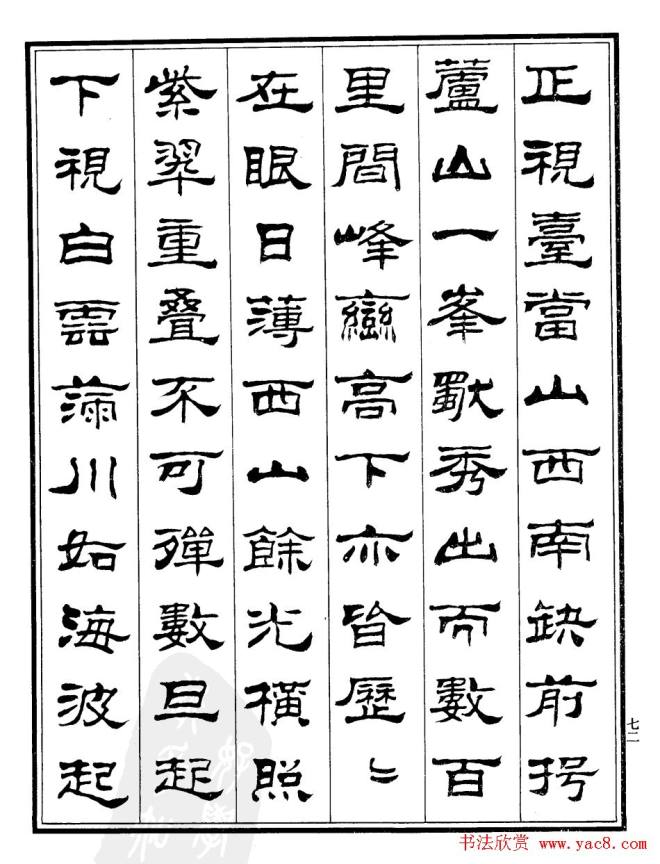 正視臺當山西南缺前揭
蘆山一峯獨秀出而數百
里間峰巒高下亦皆歷〻
在眼日薄西山餘光橫照
紫翠重疊不可殫數旦起
下視白雲滿川如海波起
七二
书法欣赏 www.yac8.com